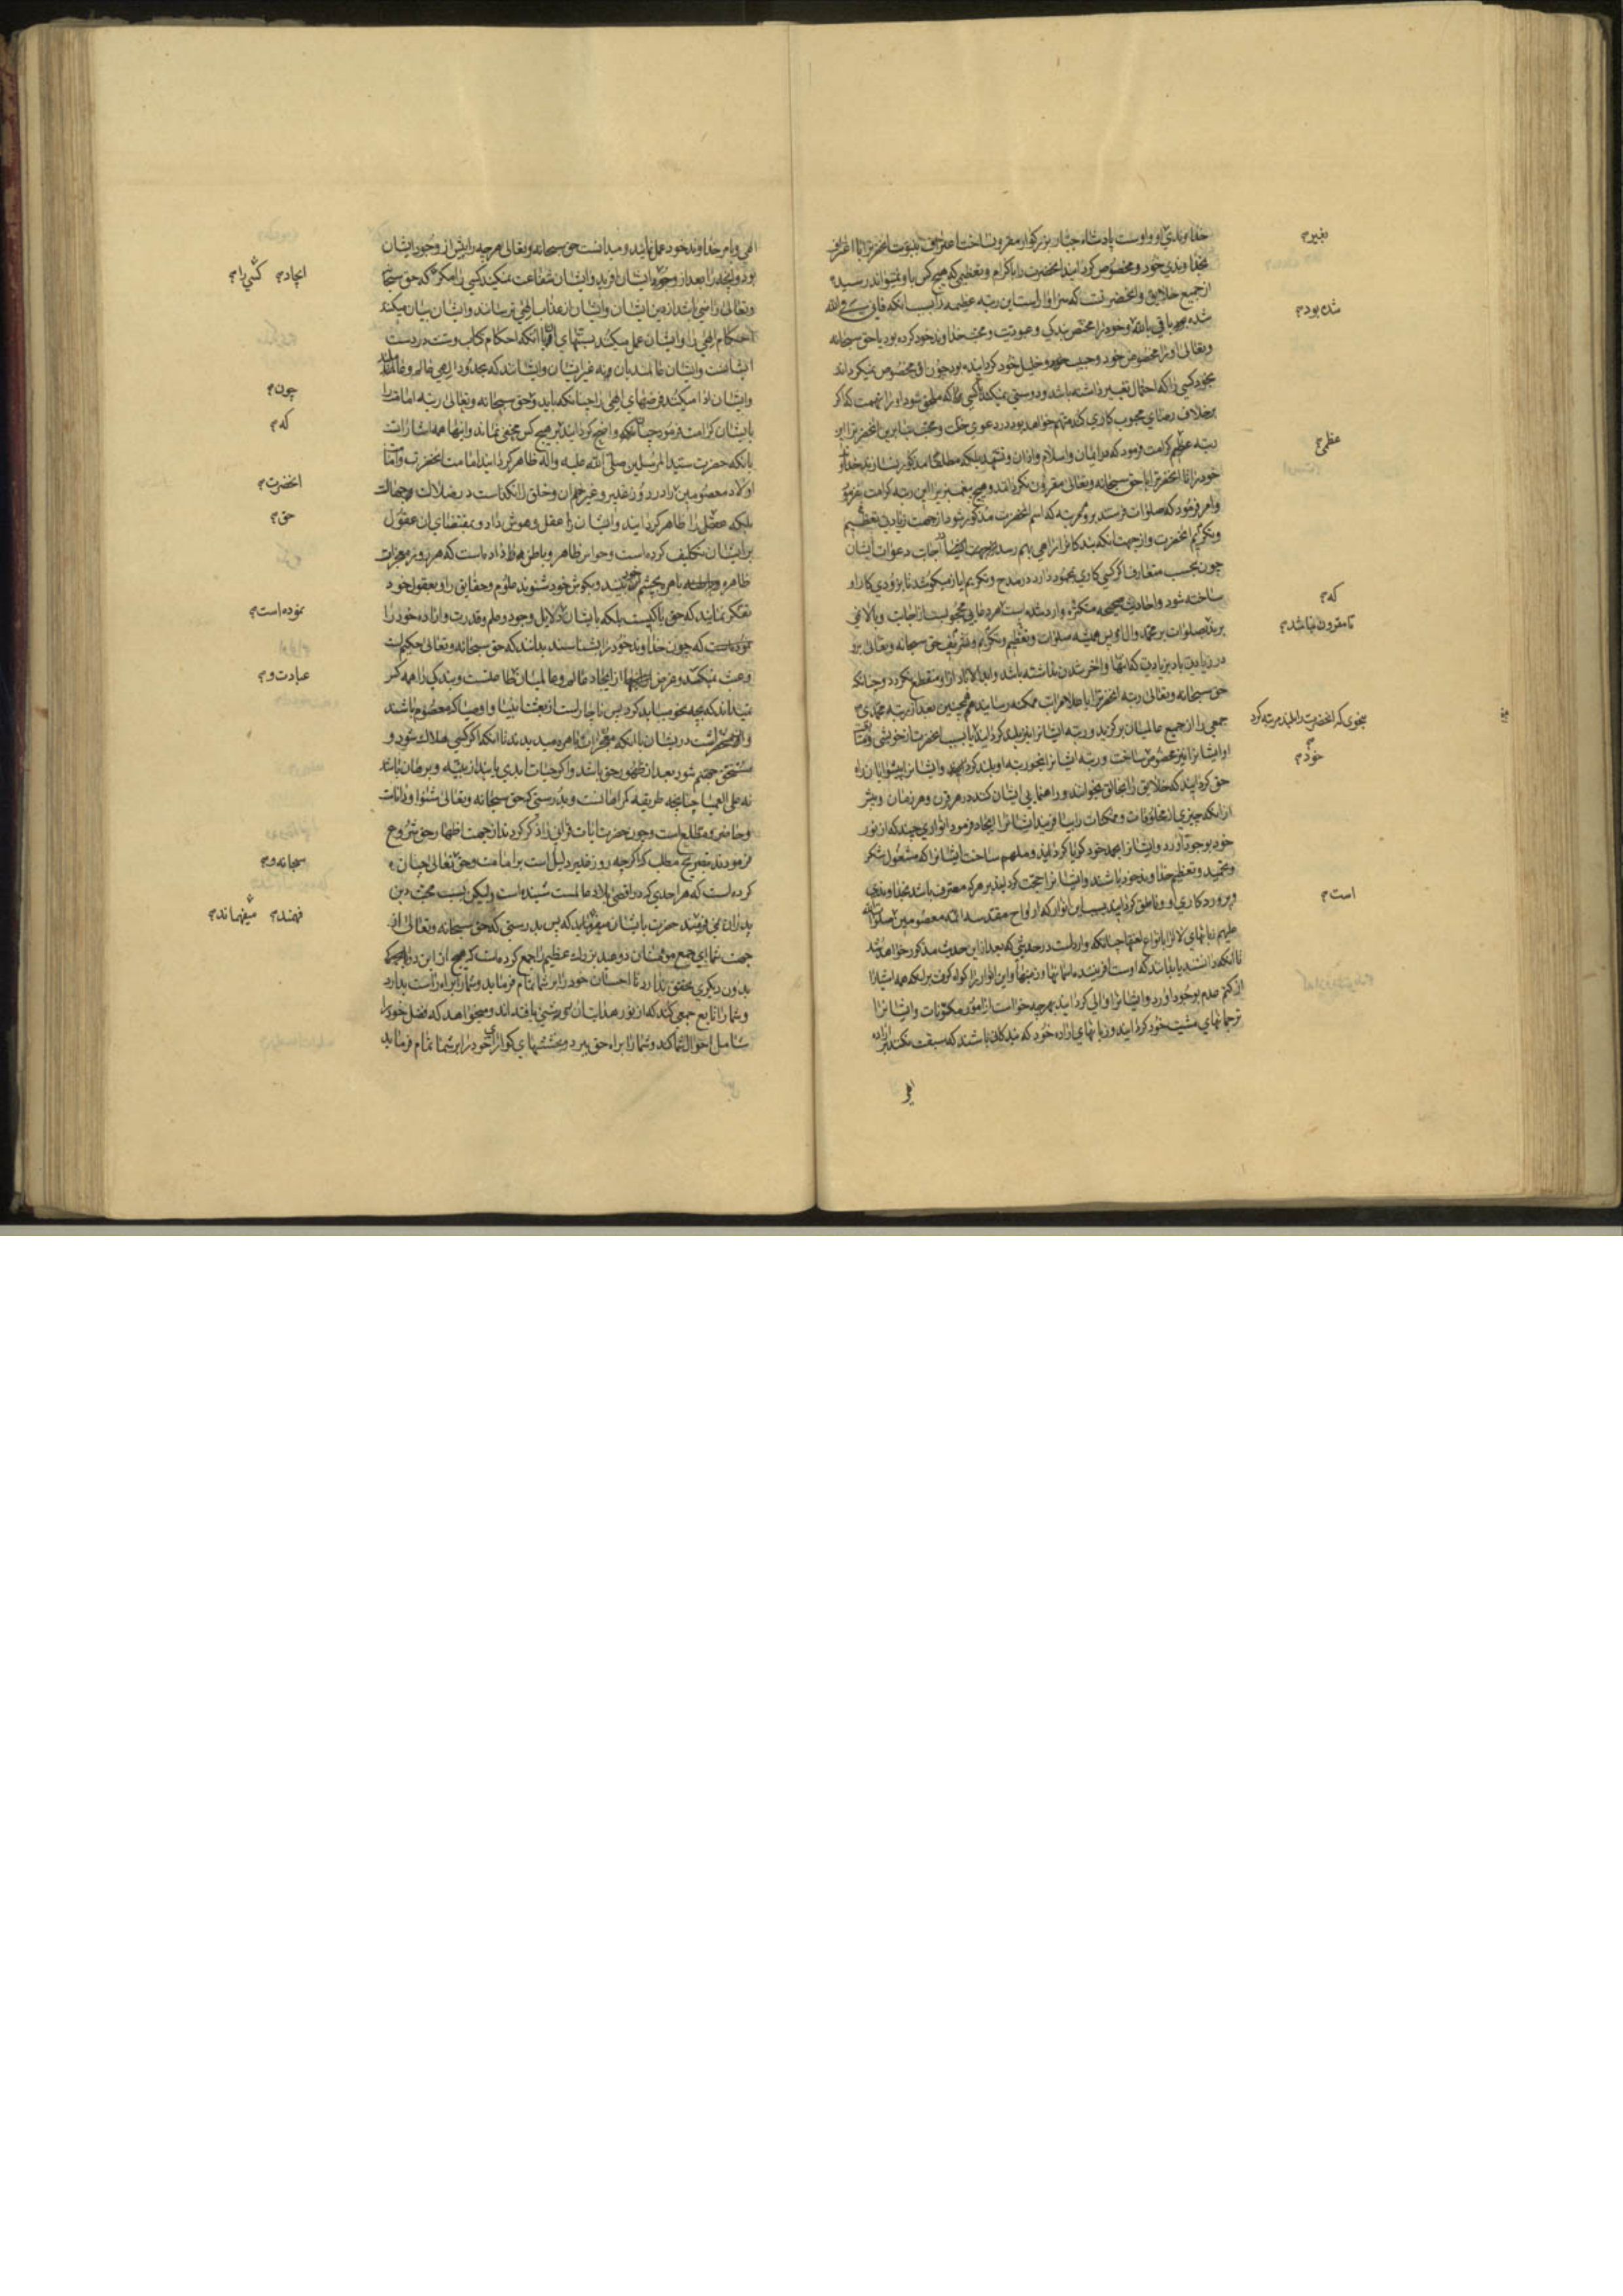 خداوندي او و اوست پادشاه جبار بزرکوار مقرون ساخت اعتراف بنبوت انحضرترا با اعتراف
بخداوندي خود و مخصوص کردانید انحضرت را باکرام و تعظیمي که هیچ کس باو نمیتواند رسید
از جمیع خلایق و انحضرتست که سزاوار است این رتبه عظیمه را بسبب انکه فاني في الله
شده باقي بالله و خود را مختص بندکي و عبودیت و محبت خداوند خود کرده بود یا حق سبحانه
و تعالی او را مخصوص خود و حبیب خود و خلیل خود کردانیده بود چون او مخصوص نمیکرداند
بخود کسي را که احتمال تغییر داشته باشد و دوستي نمیکند با کسي که
بر خلاف رضاي محبوب کاري کند متهم خواهد بود در دعوي خلت و محبت بنابرین انحضرترا این
رتبه عظیم کرامت فرمود که در ایمان و اسلام و اذان و تشهد بلکه مطلقا مذکور نسازند خداوند
خود را تا انحضرترا با حق سبحانه و تعالی مقرون نکردانند و هیچ پیغمبریرا این رتبه کرامت نفرمود
و امر فرمود که صلوات فرستند بر و هر مرتبه که اسم انحضرت مذکور شود از جهت زیادتي تعظیم
و تکریم انحضرت و از جهت انکه بندکانرا راهي بهم رسد اجابت دعوات ایشان
چون بحسب متعارف اکر کسي کاري بمحمود دارد در مدح و تکریم ایاز میکوشد تا بزودي کار او
ساخته شود و احادیث صحیحه متکثره وارد شده است هر دعایي محجوبست از اجابت و بالا نمي
برند صلوات بر محمد و ال او پس همیشه صلوات و تعظیم و تکریم و تشریف حق سبحانه و تعالی برو
در زیادتي باد بزیادتي که انتها و اخر شدن نداشته باشد و ابد الاباد ازو منقطع نکردد و چنانکه
حق سبحانه و تعالی رتبه انحضرترا باعلا مراتب ممکنه رسانید همچنین بعد از رتبه محمدي
جمعي را از جمیع عالمیان برکزید و رتبه ایشانرا نیز بلند کردانید
او ایشانرا نیز مخصوص ساخت و رتبه ایشانرا نحو رتبه او بلند کرد و ایشانرا پیشوایان راه
حق کردانید که خلایق را بخالق بخوانند و راهنمایي ایشان کنند در هر قرن و هر زمان و پیش
از انکه چیزي از مخلوقات و ممکنات را بیافریند ایشانرا ایجاد فرمود انواري چند که از نور
خود بوجود اورد و ایشانرا بحمد خود کویا کردانید و ملهم ساخت ایشانرا که مشغول شکر
و تمجید و تعظیم خداوند خود باشند و ایشانرا حجت کردانید بر هر که معترف باشد بخداوندي
و پروردکاري او و ناطق کردانید بسبب این انوار که ارواح مقدسه ائمه معصومین صلوات الله
علیهم زبانهاي لال را بانواع لغتها چنانکه وارد است در حدیثي که بعد از این حدیث مذکور خواهد شد
تا انکه دانستند یا بدانند که اوست افریننده اسمانها و زمینها و این انوار را کواه کرفت بر انکه همه اشیا را
از کتم عدم بوجود اورد و ایشانرا والي کردانید بهر چه خواست از امور مکنونات و ایشانرا
ترجمانهاي مشیت خود کردانید و زبانهاي اراده خود که بندکاني باشند که سبقت نکنند بر اراده
الهي
تغییر م
شده بود م
عظمی م
که م
تا مقرون نباشد م
بنحوی که انحضرت را بلند مرتبه کرد
خود م
است م
الهي و بامر خداوند خود عمل نمایند و میدانست حق سبحانه و تعالی هر چه را پیش از وجود ایشان
بود و انچه را بعد از وجود ایشان افرید و ایشان شفاعت نمیکنند کسي را مکر که حق سبحانه
و تعالی راضي باشد از دین ایشان و ایشان از عذاب الهي ترسانند و ایشان بیان میکنند
احکام الهي را و ایشان عمل میکنند بسنتهاي او یا انکه احکام کتاب و سنت در دست
ایشانست و ایشان عالمند بان و نه غیر ایشان و ایشانند که بحدود الهي عالم و عاملند
و ایشان ادا میکنند فرضهاي الهي را چنانکه باید و حق سبحانه و تعالی رتبه امامت را
بایشان کرامت فرمود چنانکه واضح کردانید بر هیچ کس مخفي نماند و اینها همه اشارتست
بانکه حضرت سید المرسلین صلی الله علیه و اله ظاهر کردانید امامت انحضرت و امامت
اولاد معصومین را در روز غدیر و غیر ان و خلق را نکذاشت در ضلالت و جهالت
بلکه عقل را ظاهر کردانید و ایشان را عقل و هوش داد و بمقتضاي ان عقول
بر ایشان تکلیف کرده است و حواس ظاهر و باطن هم داده است که هر روز معجزات
ظاهره باهره بچشم خود بینند و بکوش خود شنوند علوم و حقایق را و بعقول خود
تفکر نمایند که حق با کیست بلکه بایشان دلایل وجود و علم و قدرت و اراده خود را
که چون خداوند خود را بشناسند بدانند که حق سبحانه و تعالی حکیم است
و عبث نمیکند و غرض از ایجاد عالم و عالمیان طاعتست و بندکي را همه کس
نمیداند که بچه نحو میباید کرد پس ناچار است از بعثت انبیا و اوصیا که معصوم باشند
و در ایشان یا انکه معجزات باهره میدیدند تا انکه اکر کسي هلاک شود و
مستحق جهنم شود بعد از ظهور حق باشد و اکر حیات ابدي یابند از بینه و برهان باشد
نه علی العمیا چنانچه طریقه کمراهانست و بدرستي که حق سبحانه و تعالی شنوا و داناست
و حاضر و مطلع است و چون حضرت ایات قراني را ذکر کردند از جهت اظهار حق شروع
فرمودند بصریح مطلب که اکرچه روز غدیر دلیل است بر امامت و حق تعالی چنان
کرده است که هر احدي که در اقصی بلاد عالمست شنیده است ولیکن بسبب محبت دین
پدران نمي فهمند حضرت بایشان میفرماید که پس بدرستي که حق سبحانه و تعالی از
جهت شما اي جمع مؤمنان دو عید بزرک عظیم را جمع کرده است که هیچ از این دو
بدون دیکري تحقق ندارد تا احسان خود را بر شما تمام فرماید و شما را بر راه راست بدارد
و شما را تابع جمعي کند که از نور هدایت او روشني یافته اند و میخواهد که فضل خود را
شامل احوال شما کند و شما را براه حق ببرد و بخششهاي کواراي خود را بر شما تمام فرماید
ایجاد م کسي را م
چون م
که م
انحضرت م
حق م
نموده است م
عبادت و م
سبحانه و م
فهمند م میفهماند م